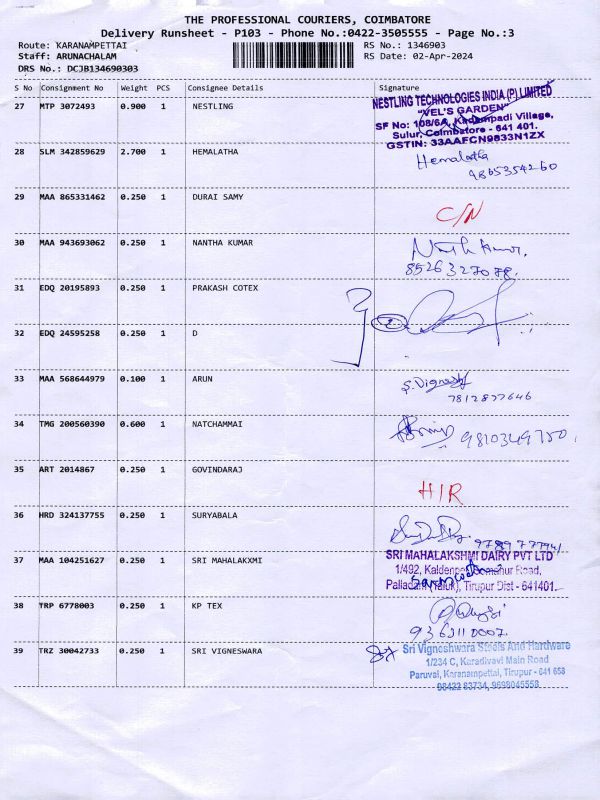 THE PROFESSIONAL COURIERS, COIMBATORE
Delivery Runsheet - P103 - Phone No.:0422-3505555 - Page No.:3
Route: KARANAMPETTAI RS No.: 1346903
Staff: ARUNACHALAM RS Date: 02-Apr-2024
DRS No.: DCJB134690303
S No Consignment No Weight PCS Consignee Details Signature
27 MTP 3072493 0.900 1 NESTLING
NESTLING TECHNOLOGIES INDIA (P) LIMITED
"VEL'S GARDEN"
SF No: 108/6A, Kadampadi Village,
Sulur, Coimbatore - 641 401.
GSTIN: 33AAFCN9833N1ZX
28 SLM 342859629 2.700 1 HEMALATHA
Hemalatha
9865354260
29 MAA 865331462 0.250 1 DURAI SAMY
C/N
30 MAA 943693062 0.250 1 NANTHA KUMAR
8526327078.
31 EDQ 20195893 0.250 1 PRAKASH COTEX
32 EDQ 24595258 0.250 1 D
2
33 MAA 568644979 0.100 1 ARUN
S.Vignesh
7812877646
34 TMG 200560390 0.600 1 NATCHAMMAI
9810349750
35 ART 2014867 0.250 1 GOVINDARAJ
H/R
36 HRD 324137755 0.250 1 SURYABALA
37 MAA 104251627 0.250 1 SRI MAHALAKXMI
SRI MAHALAKSHMI DAIRY PVT LTD
1/492, Road,
Palladam (Taluk), Tirupur Dist - 641401.
38 TRP 6778003 0.250 1 KP TEX
39 TRZ 30042733 0.250 1 SRI VIGNESWARA
Sri Vigneshwara Steels And Hardware
1/234 C, Karadivavi Main Road
Paruval, Karanampettai, Tirupur - 641 658
98422 83734, 9698045558